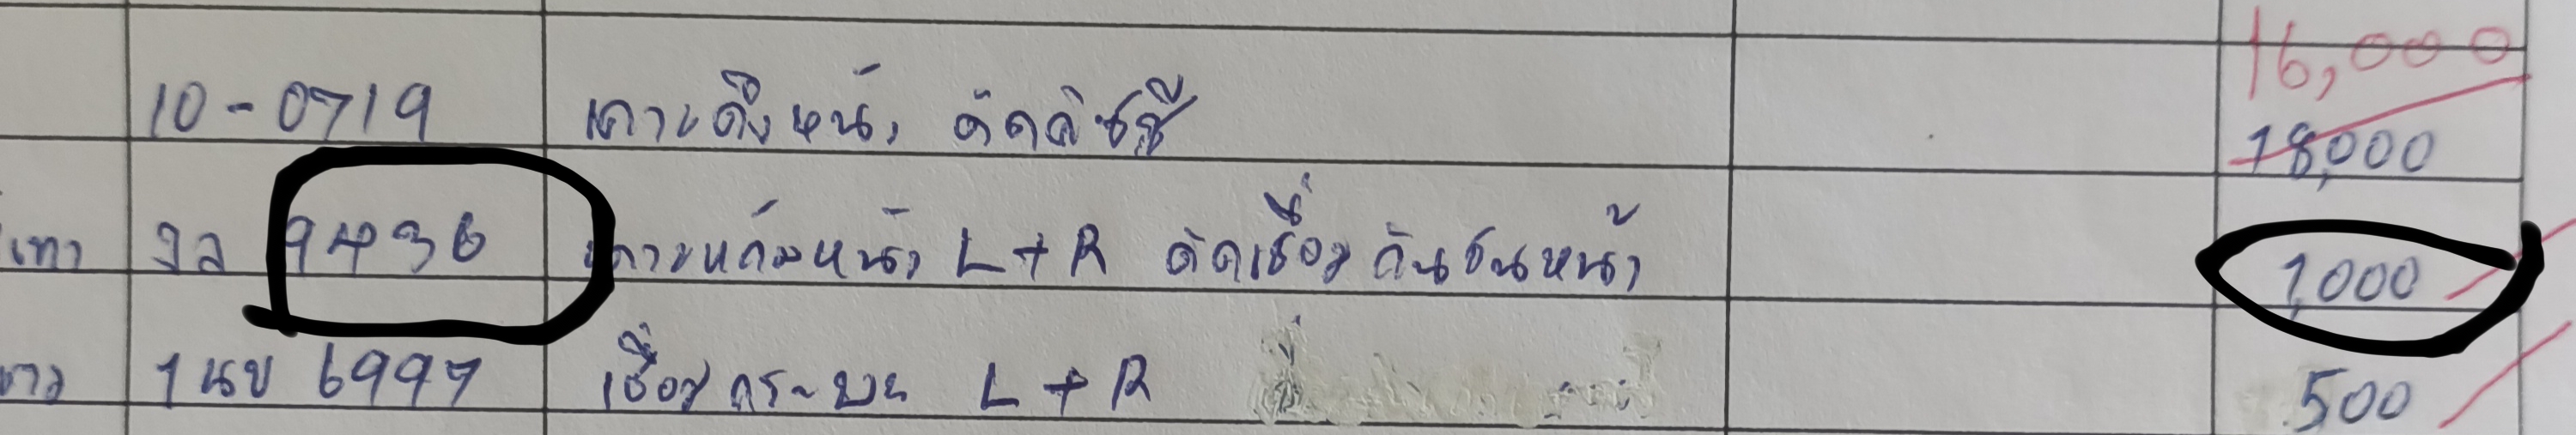 16,000
10-0719 เคาะดึงหน้า ดัดคัชซี 18,000
เทา วล 9436 เคาะแก้มหน้า L+R ดัดเชื่อม กันชนหน้า 1,000
ขาว 1นข 6997 เชื่อม กระบะ L+R 500